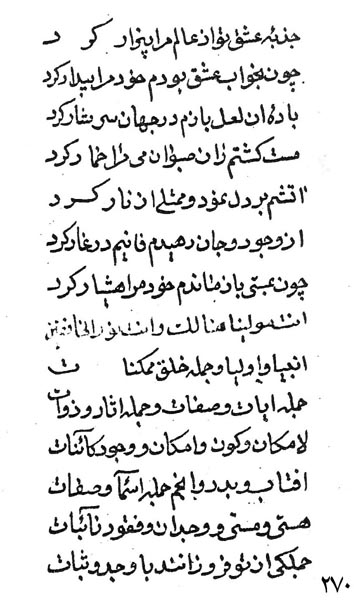 جذبهٔ عشق تو از عالم مرا بیزار کرد
چون بخواب عشق بودم خود مرا بیدار کرد
بادهٔ ان لعل بازم در جهان سرشار کرد
مست کشتم زان صبوان می مرا خمار کرد
اتشم بر دل نمود و ممتلی از نار کرد
از وجود و جان رهیدم فانیم در غار کرد
چون بمستی باز ماندم خود مرا هشیار کرد
انت مولینا هنالک وانت نور الخافقین
انبیا و اولیا و جمله خلق ممکنات
جمله ایات و صفات و جمله اثار و ذوات
لامکان و کون و امکان و وجود کائنات
افتاب و بدر و انجم جمله اسمآ و صفات
هستی و مستی و وجدان و فقود نآئبات
جملکی از تو فروزانند با وجد و ثبات
۲۷۰